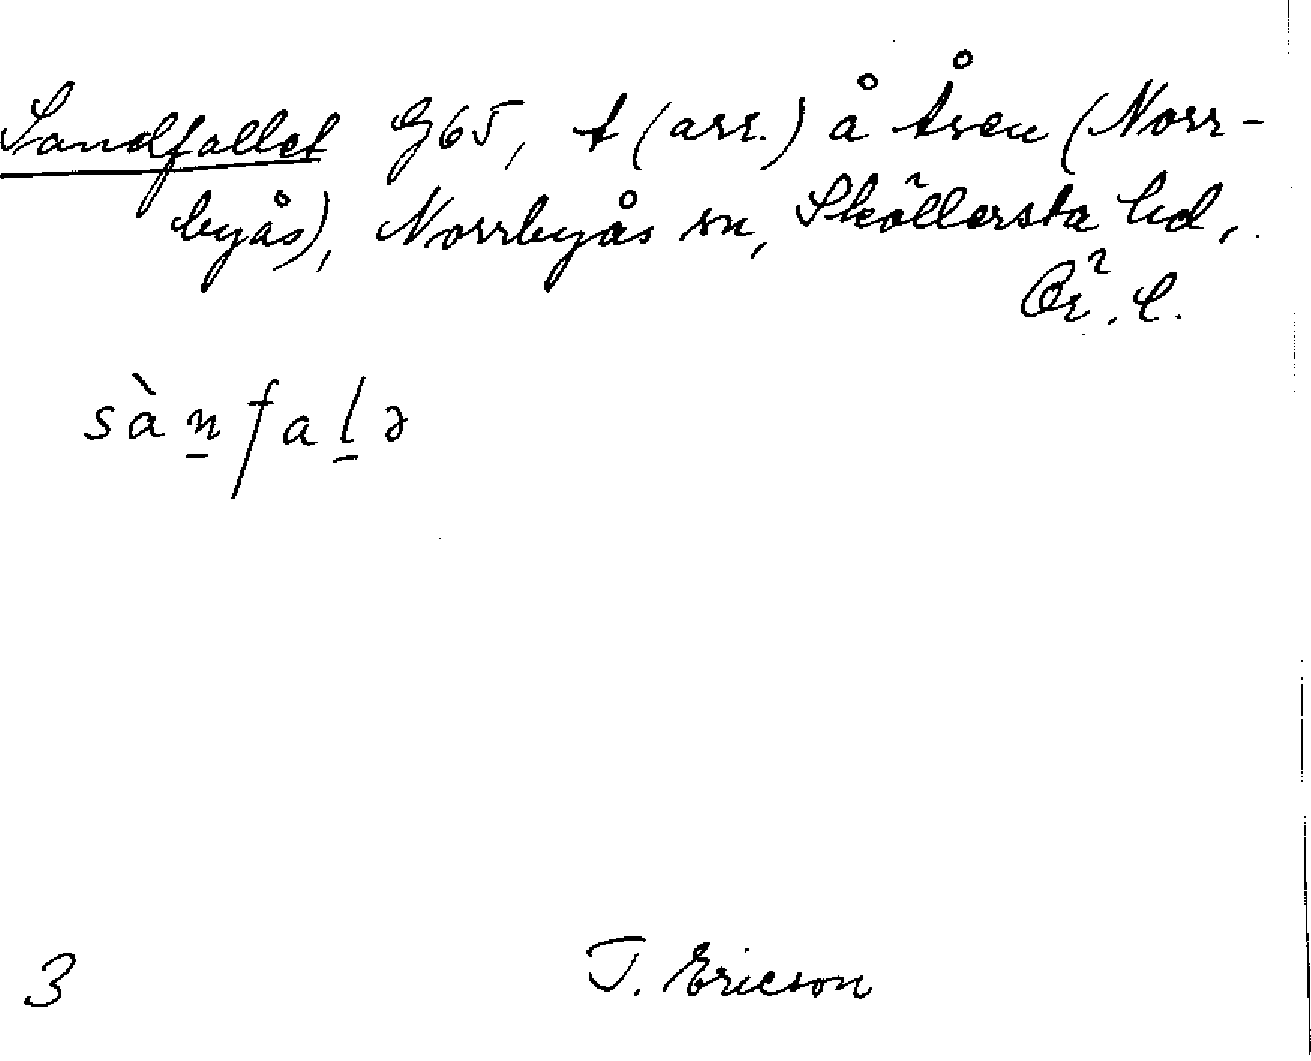 Sandfallet G65, t (arr.) å Åsen (Norr-
byås), Norrbyås sn, Sköllersta hd,
Ör. l.
sàn̲fal̲ə
3 T. Ericson